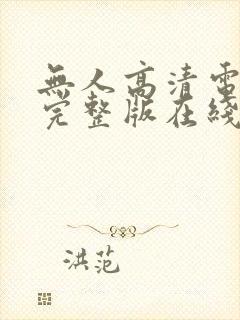 無人高清電
完整版在綫
洪范